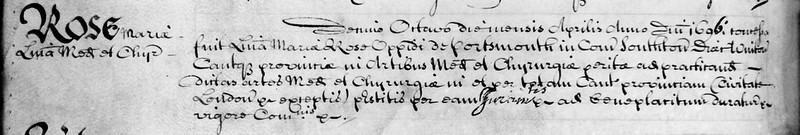 Rose Mariæ
Lnīa Med et Chyr
Denuo Octavo die mensis Aprilis Anno Dn̄i 1696
fuit Lnīa Mariæ Rose Oppidi de Portsmouth in Com Southton
Cantque provinciæ in Artibus Med et Chyrurgiæ peritæ ad practicand
dictas artes Med et Chyrurgiæ in et per totam Cant provinciam (Civitate
London exceptis) pr̄stitis per eam Juramtis ad beneplacitum duratur
vigore Com